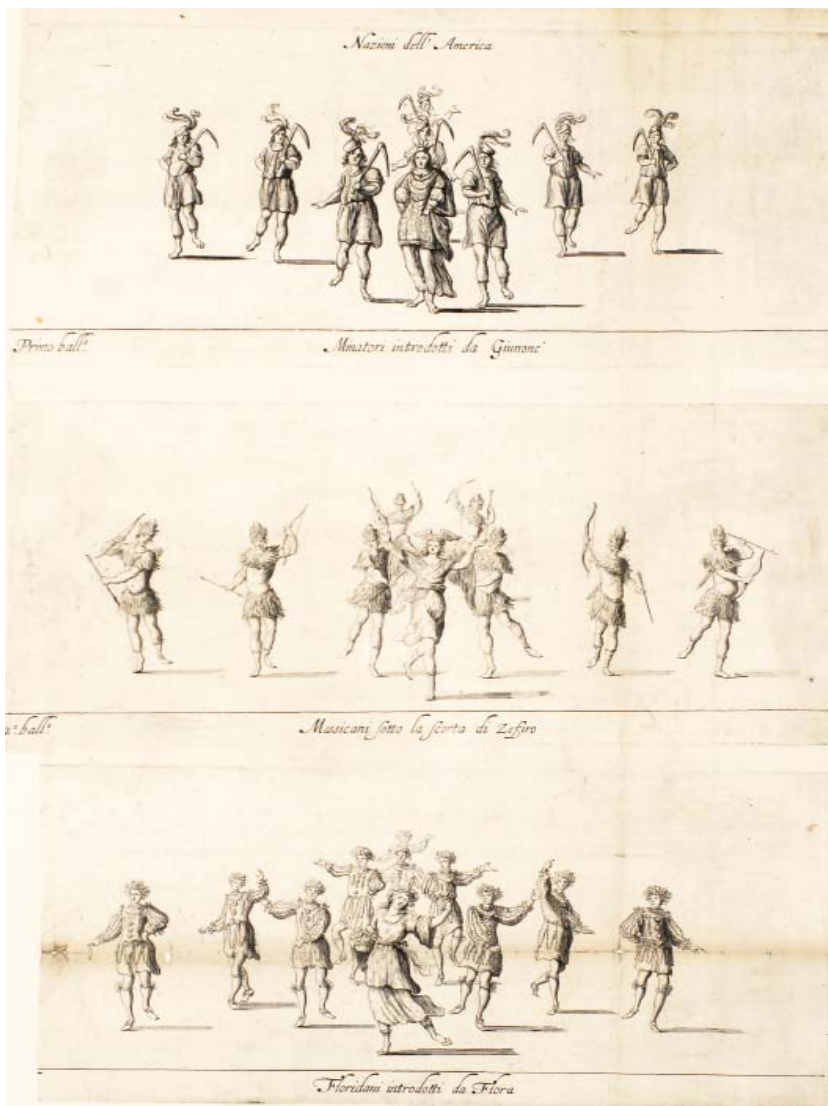 Nazioni dell' America
Primo ball.º Minatori introdotti da Giunone
2.º ball.º Messicani sotto la scorta di Zeffiro
Floridani introdotti da Flora